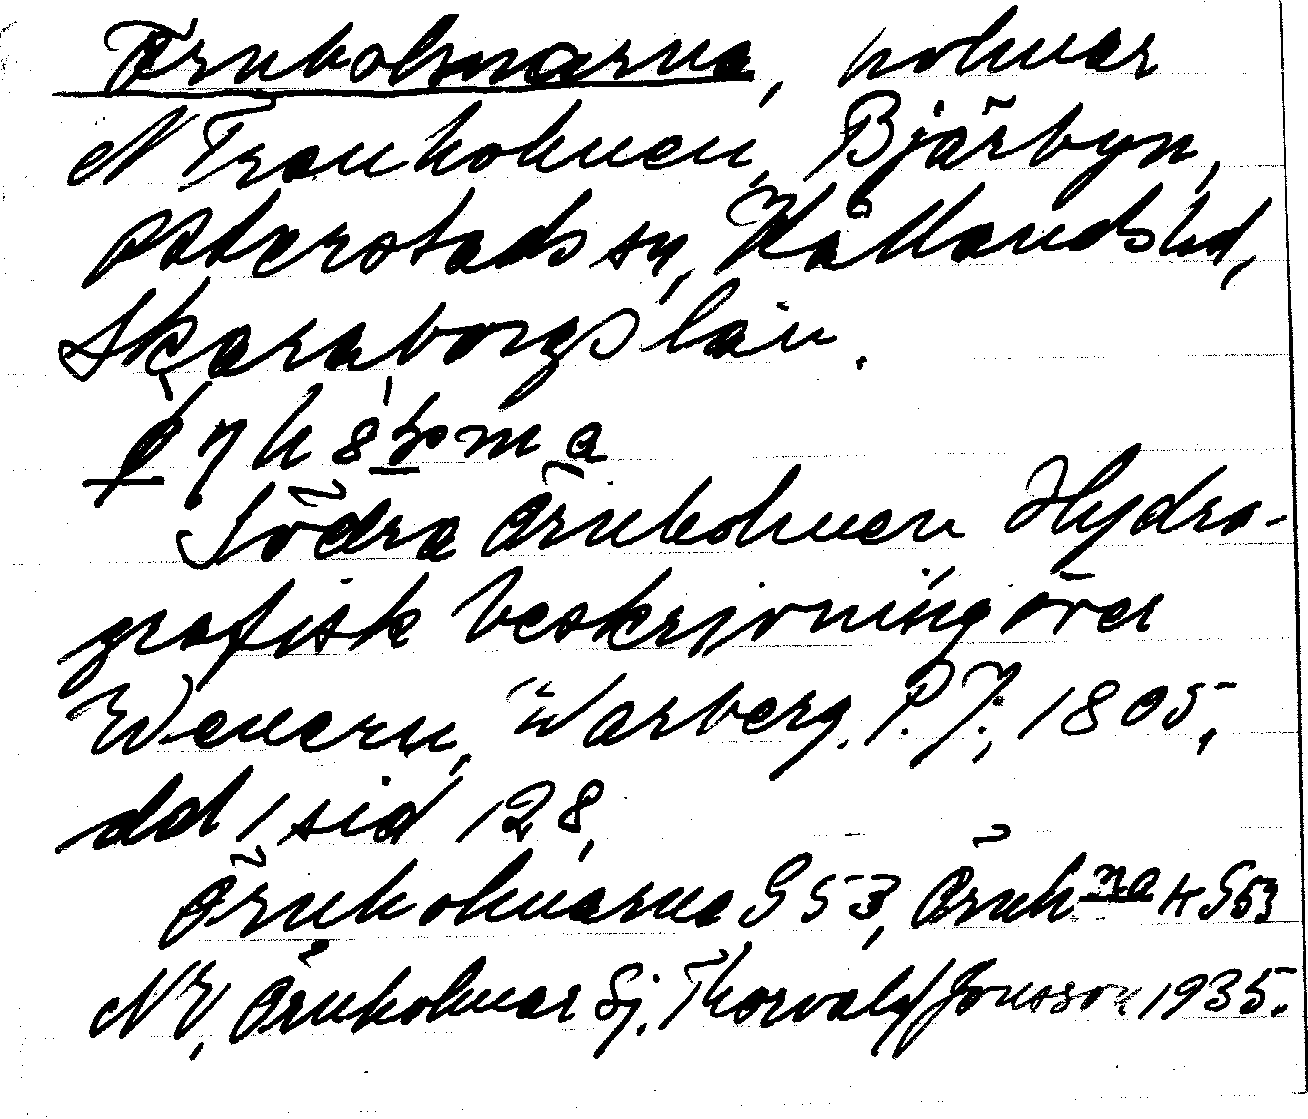 Örnholmarna, holmar
N Tranholmen, Bjärbyn,
Otterstads sn, Kållands hd,
Skaraborgs län.
Södra Örnholmen Hydro-
grafisk beskrivning över
Wenern, Warberg. P. J., 1805,
del 1 sid 128,
Örnholmarna G 53, Örnh na K G53
NV, Örnholmar Sj. Thorvald Jonsson 1935.